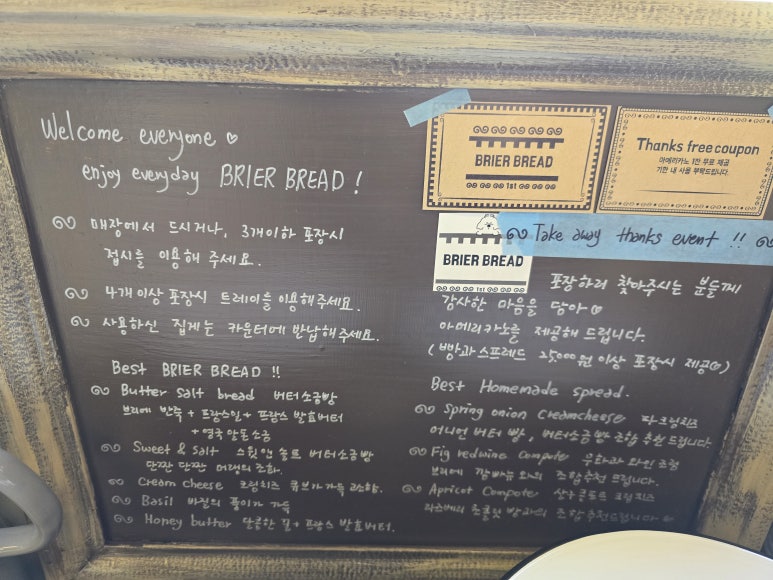 Welcome everyone ♡
enjoy everyday BRIER BREAD !
매장에서 드시거나, 3개이하 포장시
접시를 이용해 주세요.
4개이상 포장시 트레이를 이용해주세요.
사용하신 집게는 카운터에 반납해주세요.
Best BRIER BREAD !!
Butter salt bread 버터소금빵
브리에 반죽 + 프랑스밀 + 프랑스 발효버터
+ 영국 안돈소금
Sweet & salt 스윗앤솔트 버터소금빵
단짠 단짠 매력의 조화.
Cream cheese 크림치즈 큐브가 가득 고소함.
Basil 바질의 풍미가 가득
Honey butter 달콤한 꿀 + 프랑스 발효버터.
BRIER BREAD
1st
Thanks free coupon
아메리카노 1잔 무료 제공
기한 내 사용 부탁드립니다.
Take away thanks event !!
BRIER BREAD
1st
포장하러 찾아주시는 분들께
감사한 마음을 담아♡
아메리카노를 제공해 드립니다.
(빵과 스프레드 25,000원 이상 포장시 제공♡)
Best Homemade spread.
Spring onion Creamcheese 파크림치즈
어니언 버터 빵, 버터소금빵 조합 추천드립니다
Fig redwine Compote 무화과 와인 조림
브리에 깜빠뉴와의 조합추천 드립니다.
Apricot Compote 살구콩포트 크림치즈
라즈베리 초콜릿 빵과의 조합추천드립니다♡